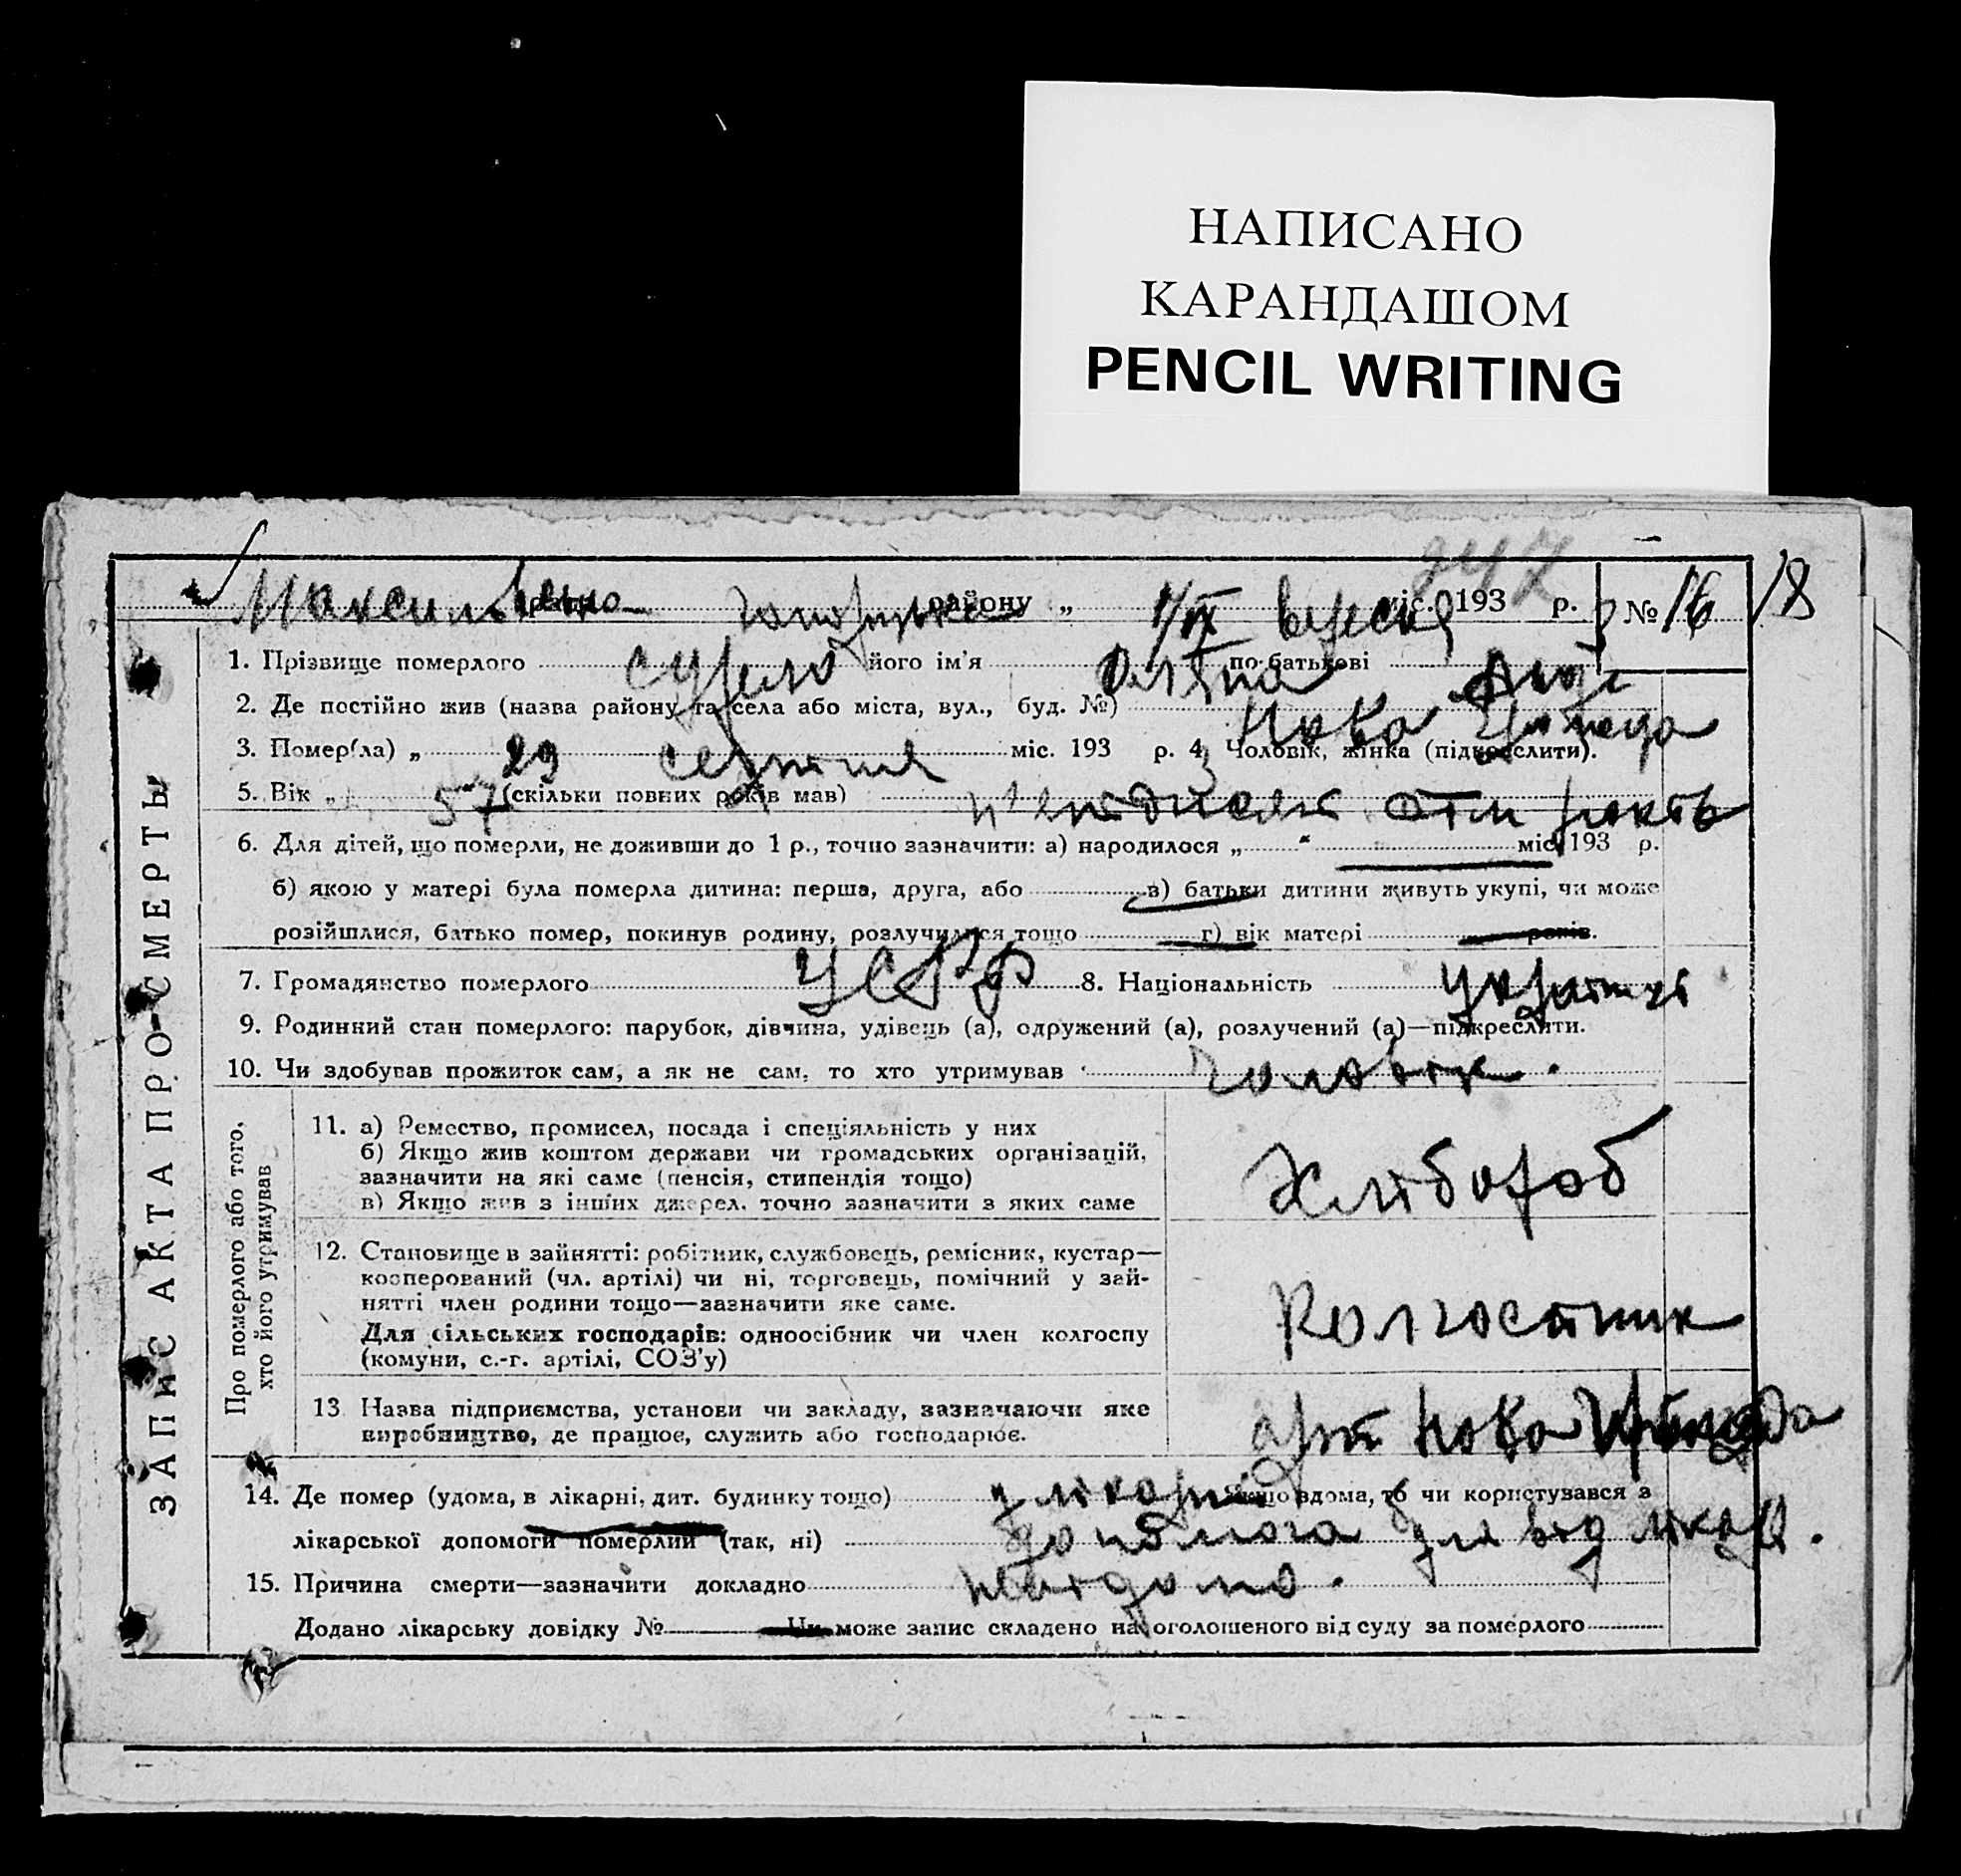 НАПИСАНО
КАРАНДАШОМ
PENCIL WRITING
247
району „ 1/IX вересня міс. 193 р. № 16 18
1. Прізвище померлого його ім'я по батькові
2. Де постійно жив (назва району та села або міста, вул., буд. №) Нова
3. Помер(ла) „ 29 серпня міс. 193 р. 4. Чоловік, жінка (підкреслити).
5. Вік „ 57 (скільки повних років мав) п'ятдисят сім років
6. Для дітей, що померли, не доживши до 1 р., точно зазначити: а) народилося „ “ міс. 193 р.
б) якою у матері була померла дитина: перша, друга, або в) батьки дитини живуть укупі, чи може
розійшлися, батько помер, покинув родину, розлучилися тощо г) вік матері років.
7. Громадянство померлого УСРР 8. Національність
9. Родинний стан померлого: парубок, дівчина, удівець (а), одружений (а), розлучений (а)—підкреслити.
10. Чи здобував прожиток сам, а як не сам, то хто утримував чоловік.
ЗАПИС АКТА ПРО СМЕРТЬ
Про померлого або того,
хто його утримував
11. а) Ремество, промисел, посада і спеціяльність у них
б) Якщо жив коштом держави чи громадських організацій,
зазначити на які саме (пенсія, стипендія тощо)
в) Якщо жив з інших джерел. точно зазначити з яких саме
Хлібороб
12. Становище в зайнятті: робітник, службовець, ремісник, кустар—
кооперований (чл. артілі) чи ні, торговець, помічний у зай-
нятті член родини тощо—зазначити яке саме.
Для сільських господарів: одноосібник чи член колгоспу
(комуни, с.-г. артілі, СОЗ'у)
Колгоспник
13. Назва підприємства, установи чи закладу, зазначаючи яке
виробництво, де працює, служить або господарює.
арт Нова
14. Де помер (удома, в лікарні, дит. будинку тощо) у лікарні Якщо вдома, то чи користувався з
лікарської допомоги померлий (так, ні) допомога від лікаря.
15. Причина смерти—зазначити докладно
Додано лікарську довідку № Чи може запис складено на оголошеного від суду за померлого